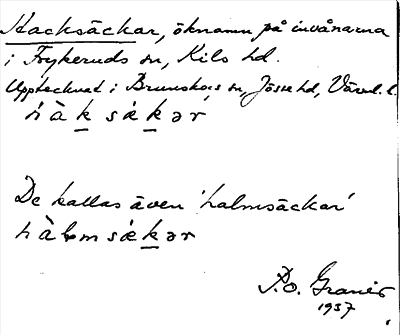 Hacksäckar, öknamn på invånarna
i Frykeruds sn, Kils hd.
Upptecknat i Brunskogs sn, Jösse hd, Värml. l.
hàk sǽkər
De kallas även 'halmsäckar'
hàlm sǽkər
P.O. Graner
1937